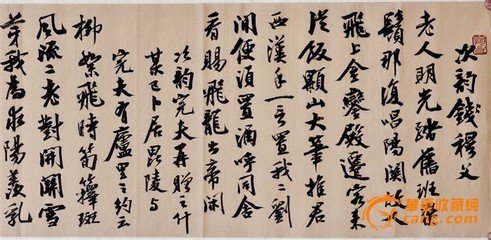 次韻錢穆父
老入明光踏舊班染
鬚那復唱陽關故人
飛上金鑾殿遷客來
從飯顆山大筆推君
西漢手一言置我二劉
間便須置酒呼同舍
看賜飛龍出帝閑
次韻完夫再贈之什
某已卜居毘陵與
完夫有廬里之約云
柳絮飛時筍籜斑
風流二老對開關雪
芽我為求陽羨乳